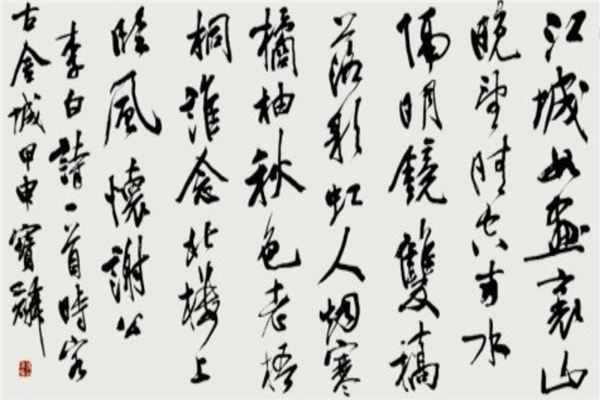 江城如畫裏山
晚望晴空兩水
隔明鏡雙橋
落彩虹人烟寒
橘柚秋色老梧
桐誰念北樓上
臨風懷謝公
李白詩一首時客
古金城甲申寶麟